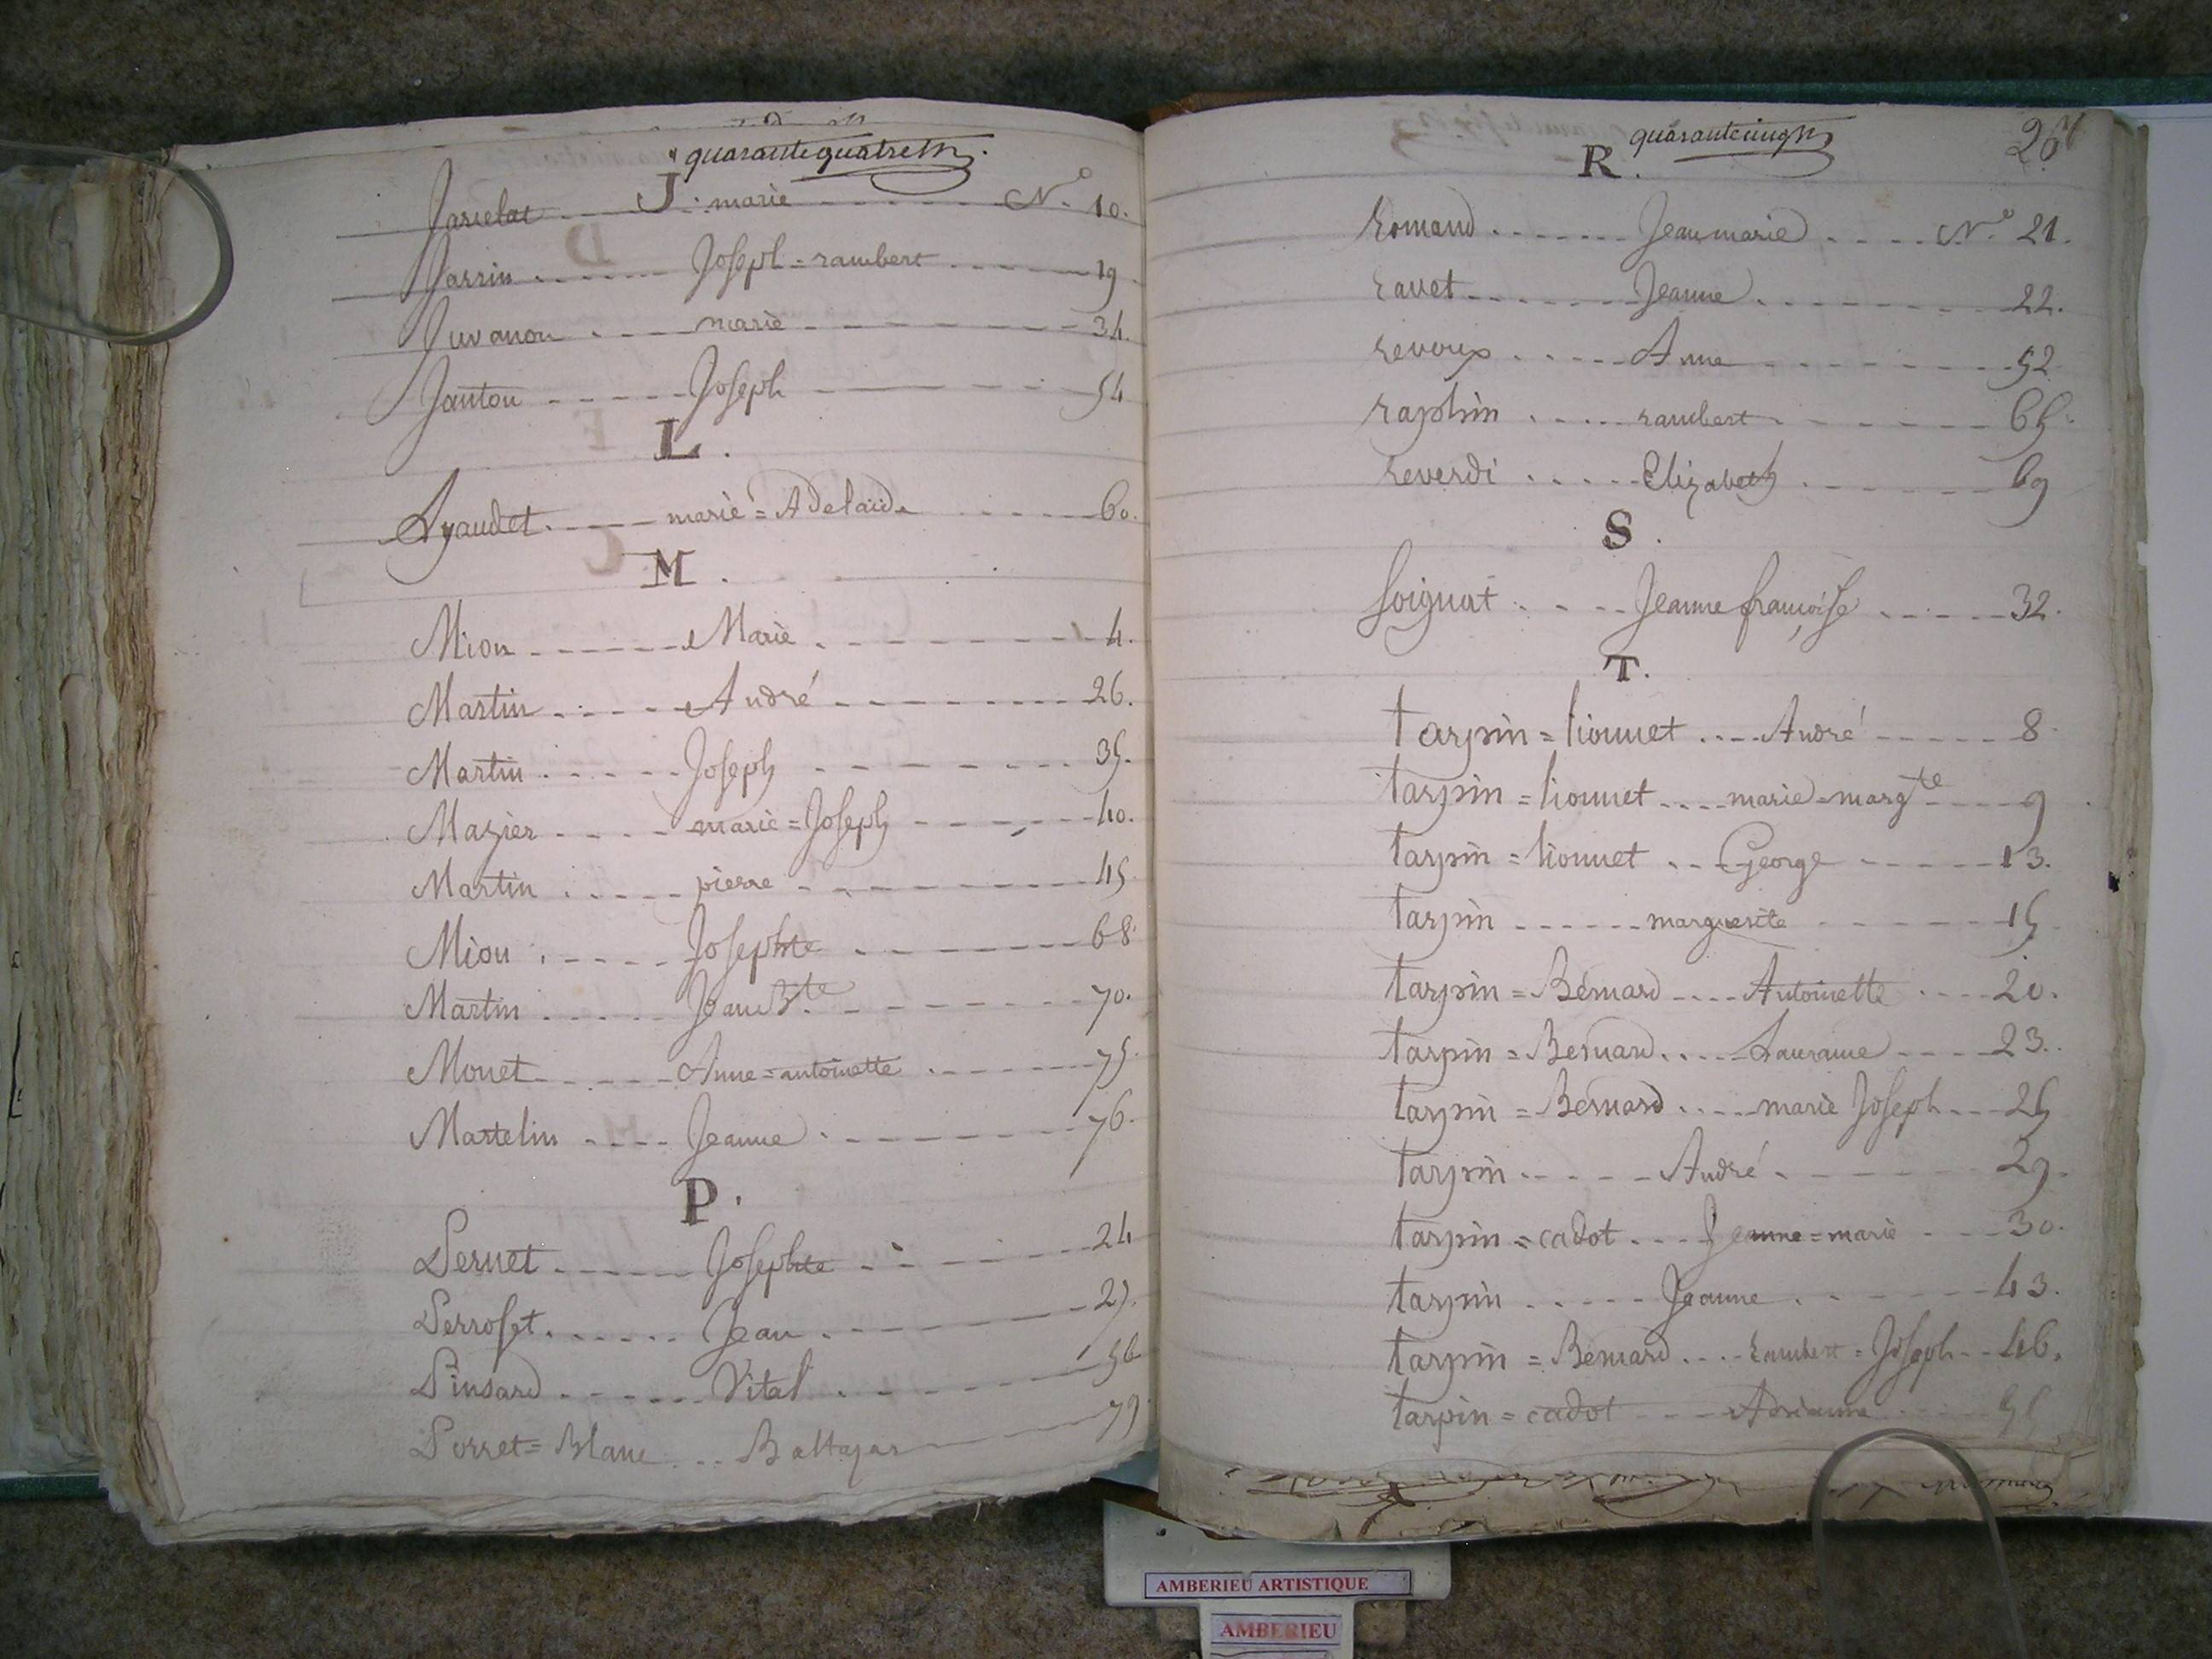 quarante quatre
J.
Jarcelat marie N.o 10.
Jarrin Joseph=rambert 19
Juvanon marie 34.
Janton Joseph 54
L.
Lyaudet marie=Adelaide 60.
M.
Mion Marie 4.
Martin André 26.
Martin Joseph 35.
Mazier marie=Joseph 40.
Martin pierre 45
Mion Josephte 68
Martin Jean Bte 70.
Monet Anne=antoinette 75.
Martelin Jeanne 76.
P.
Pernet Josephte 24
Perroset Jean 27.
Pinsard Vital 56
Perret=Blanc Baltazar 79
quarante cinq
R.
Romand Jean marie N.o 21.
ravet Jeanne 22.
revoux Anne 52
raphin rambert 65.
reverdi Elizabeth 69
S.
Soignat Jeanne françoise 32.
T.
tarpin=lionnet André 8
tarpin=lionnet marie=margte 9
tarpin=lionnet George 13.
tarpin marguerite 15
tarpin=Bernard Antoinette 20.
tarpin=Bernard 23.
tarpin=Bernard marie Joseph 25
tarpin André 29.
tarpin=cadot Jeanne=marie 30.
tarpin Jeanne 43.
tarpin=Bernard rambert=Joseph 46.
tarpin=cadot Adrianne
AMBERIEU ARTISTIQUE
AMBERIEU